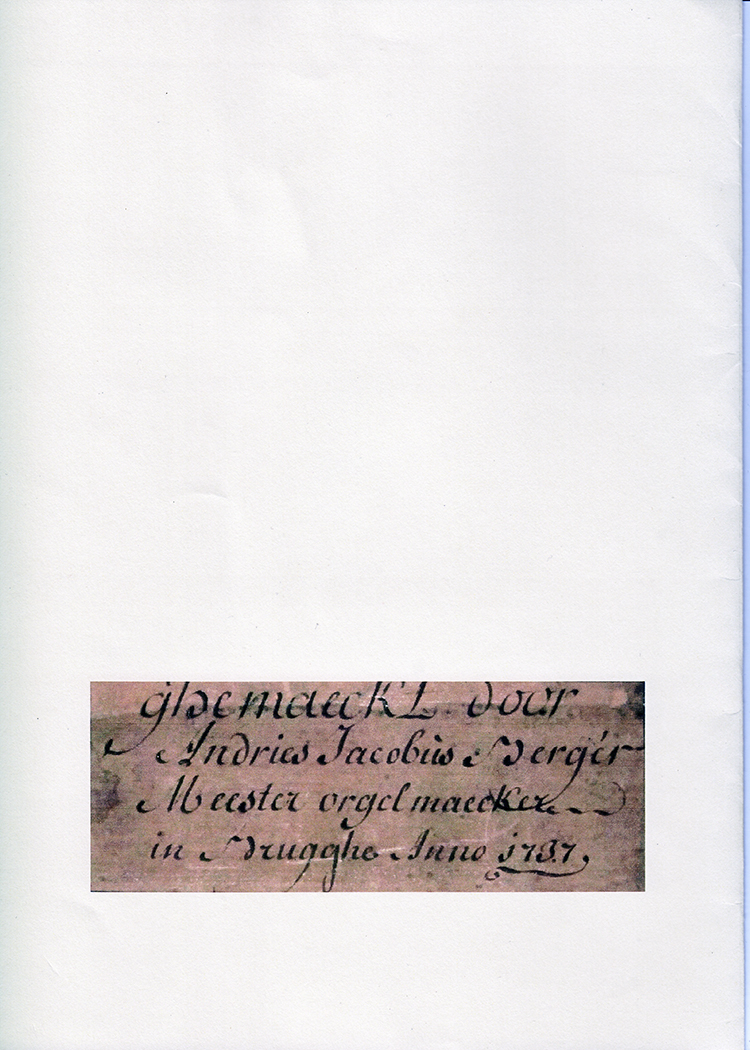 ghemaeckt door
Andries Jacobùs Bergér
Meester orgelmaecker
in Brugghe Anno 1737,